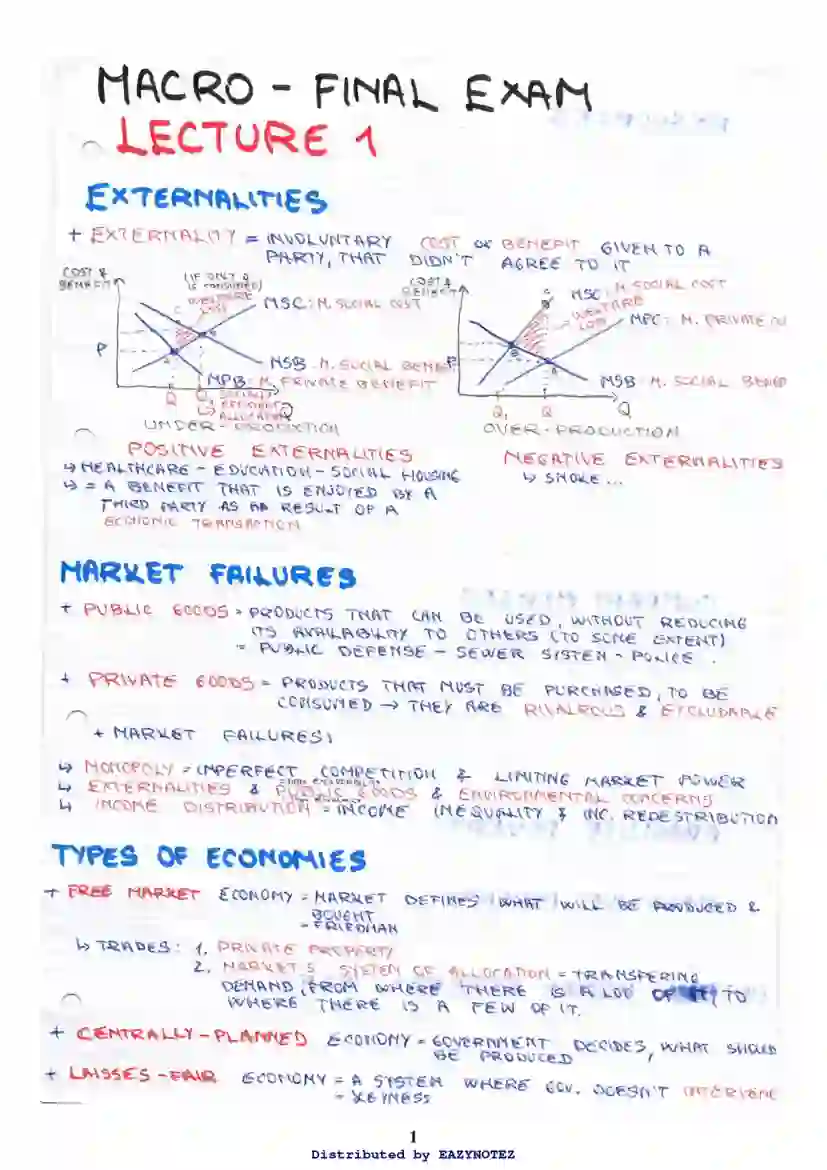 MACRO - FINAL EXAM
LECTURE 1
EXTERNALITIES
+ EXTERNALITY = INVOLUNTARY COST OR BENEFIT GIVEN TO A
PARTY, THAT DIDN'T AGREE TO IT
COST &
BENEFIT
(IF ONLY Q
IS CONSUMED)
WELFARE
LOSS
C
MSC: M. SOCIAL COST
P
MSB: M. SOCIAL BENEFIT
MPB: M. PRIVATE BENEFIT
Q Q1 SOCIALLY
EFFICIENT
ALLOCATION
Q
UNDER-PRODUCTION
COST &
BENEFIT
C
MSC: M. SOCIAL COST
WELFARE
LOSS
MPC: M. PRIVATE
P
B
A
MSB: M. SOCIAL BENEF
Q1 Q Q
OVER-PRODUCTION
POSITIVE EXTERNALITIES
↳ HEALTHCARE - EDUCATION - SOCIAL HOUSING
↳ = A BENEFIT THAT IS ENJOYED BY A
THIRD PARTY AS AN RESULT OF A
ECONOMIC TRANSACTION
NEGATIVE EXTERNALITIES
↳ SMOKE...
MARKET FAILURES
+ PUBLIC GOODS = PRODUCTS THAT CAN BE USED, WITHOUT REDUCING
ITS AVAILABILITY TO OTHERS (TO SOME EXTENT)
= PUBLIC DEFENSE - SEWER SISTEM - POLICE.
+ PRIVATE GOODS = PRODUCTS THAT MUST BE PURCHASED, TO BE
CONSUMED → THEY ARE RIVALROUS & EXCLUDABLE
+ MARKET FAILURES:
↳ MONOPOLY = IMPERFECT COMPETITION & LIMITING MARKET POWER
↳ EXTERNALITIES & PUBLIC GOODS & ENVIRONMENTAL CONCERNS
↳ INCOME DISTRIBUTION = INCOME INEQUALITY & INC. REDESTRIBUTION
TYPES OF ECONOMIES
+ FREE MARKET ECONOMY = MARKET DEFINES WHAT WILL BE PRODUCED &
BOUGHT
- FRIEDMAN
↳ TRADES: 1. PRIVATE PROPERTY
2. MARKETS SYSTEM OF ALLOCATION = TRANSFERING
DEMAND, FROM WHERE THERE IS A LOD OF IT, TO
WHERE THERE IS A FEW OF IT.
+ CENTRALLY-PLANNED ECONOMY = GOVERNMENT DECIDES, WHAT SHOULD
BE PRODUCED
+ LAISSES-FAIR ECONOMY = A SYSTEM WHERE GOV. DOESN'T INTERVENE
- KEYNESS
1
Distributed by EAZYNOTEZ